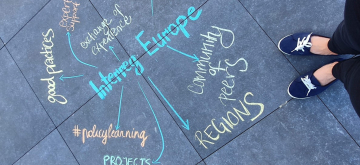 expert
support
exchange of
experience
good practices
Interreg Europe
community
of
peers
REGIONS
#policylearning
PROJECTS